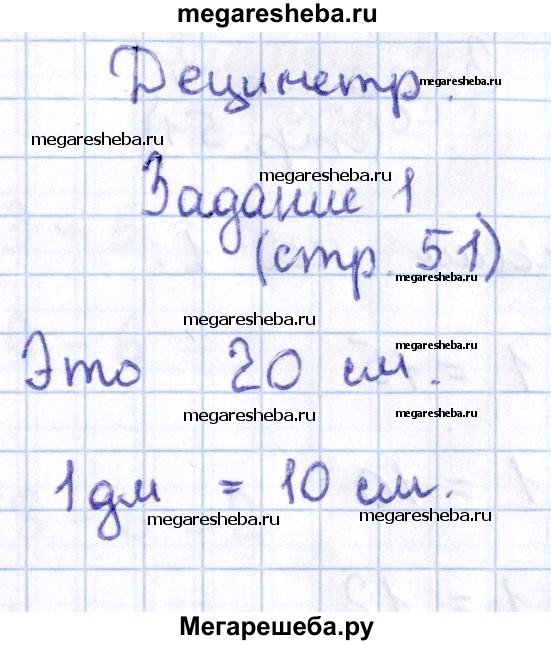 megaresheba.ru
Дециметр.
megaresheba.ru
megaresheba.ru
megaresheba.ru
Задание 1
(стр. 51)
megaresheba.ru
megaresheba.ru
megaresheba.ru
Это 20 см.
megaresheba.ru
megaresheba.ru
1 дм = 10 см.
megaresheba.ru
megaresheba.ru
Мегарешеба.ру